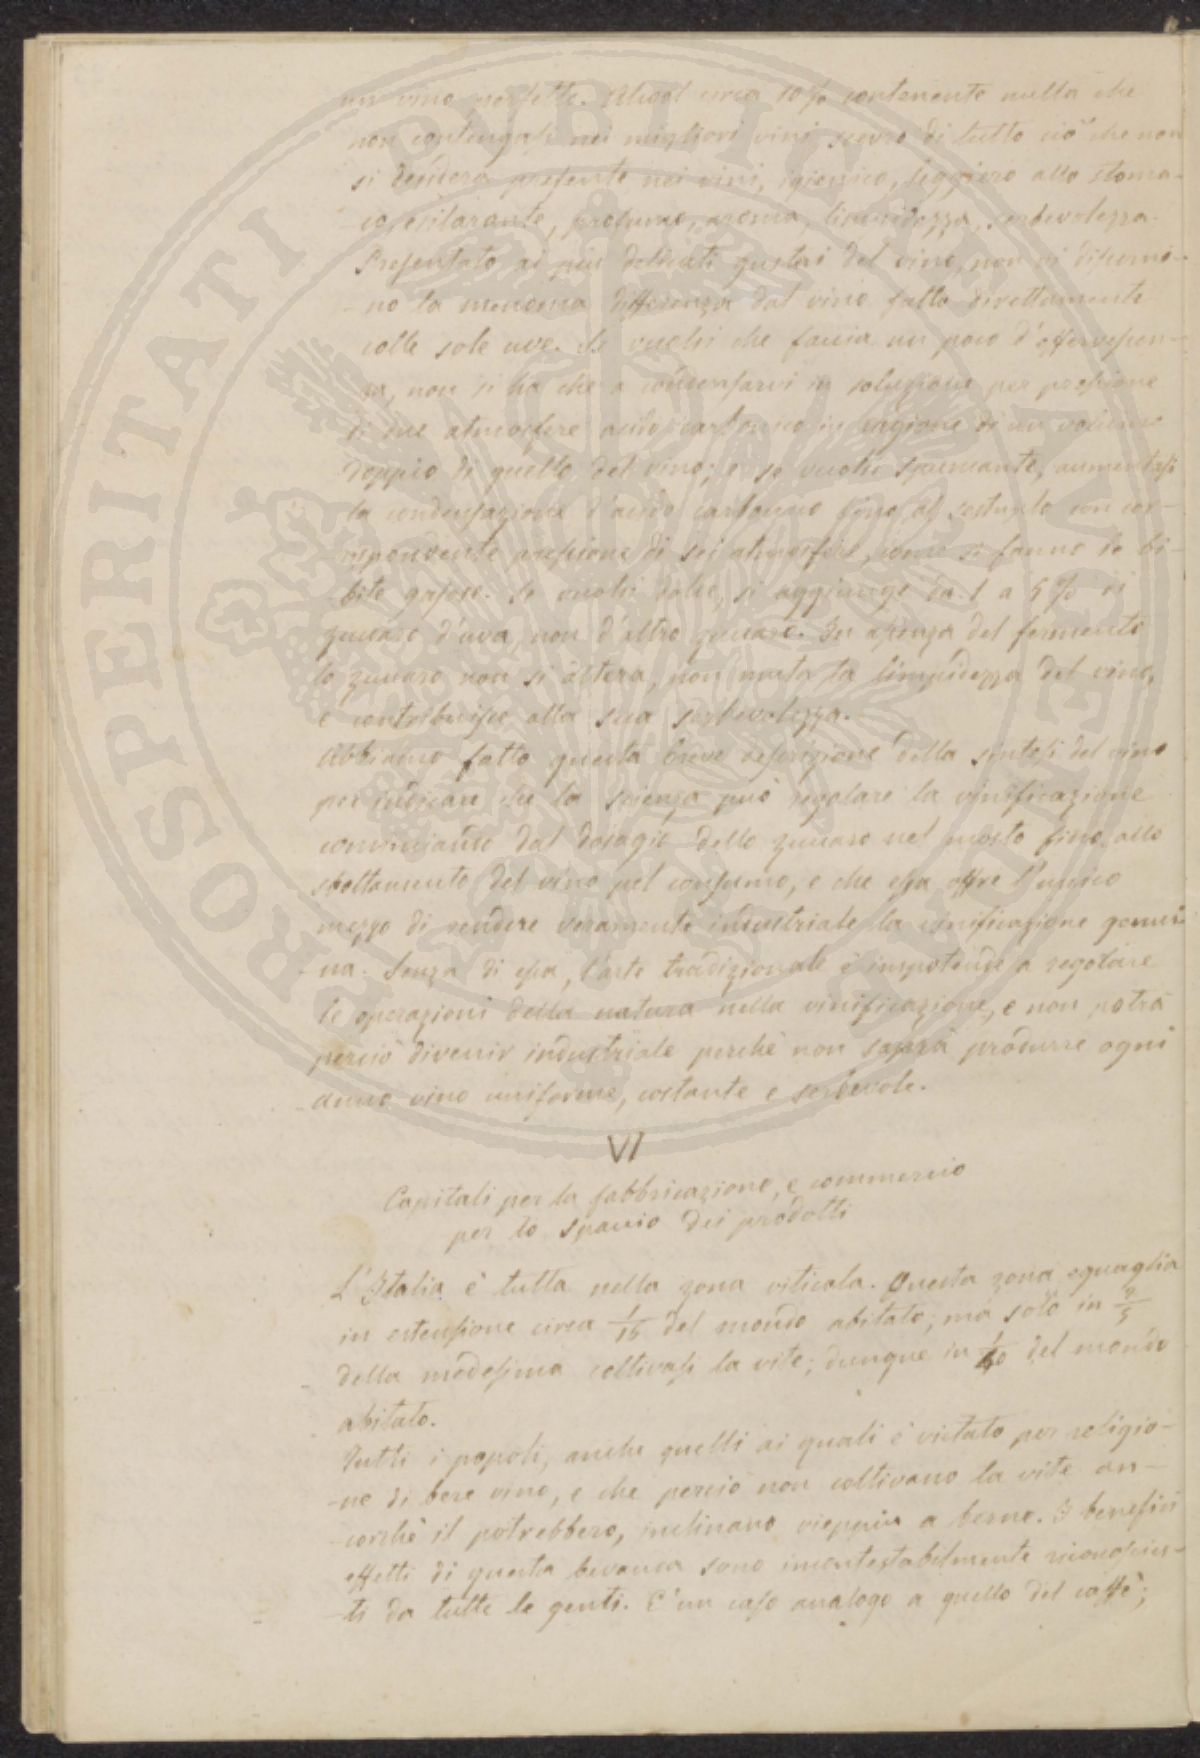 un vino perfetto. Alcool circa 10% contenente nulla che
non contengasi nei migliori vini, scevro di tutto ciò che non
si desidera presente nei vini, igienico, leggiero allo stoma-
-co, esilarante, profumo, aroma, limpidezza, serbevolezza.
Presentato ai più delicati gustai del vino, non vi discerni-
-no la menoma differenza dal vino fatto direttamente
colle sole uve. Se vuolsi che faccia un poco d'effervescen-
-za, non si ha che a condensarvi in soluzione per pressione
di due atmosfere acido carbonico in ragione di un volume
doppio di quello del vino; e se vuolsi spumante, aumentasi
la condensazione d'acido carbonico fino al sestuplo con cor-
-rispondente pressione di sei atmosfere, come si fanno le bi-
-bite gasose. Se vuolsi dolce, si aggiunge da 1 a 5% di
zuccaro d'uva, non d'altro zuccaro. In assenza del fermento
lo zuccaro non si altera, non muta la limpidezza del vino,
e contribuisce alla sua serbevolezza.
Abbiamo fatto questa breve descrizione della sintesi del vino
per indicare che la scienza può regolare la vinificazione
cominciando dal dosagio dello zuccaro nel mosto fino allo
spoltamento del vino pel consumo, e che essa offre l'unico
mezzo di rendere veramente industriale la vinificazione genui-
-na. Senza di essa, l'arte tradizionale è impotente a regolare
le operazioni della natura nella vinificazione, e non potrà
perciò divenir industriale perchè non saprà produrre ogni
anno vino uniforme, costante e serbevole.
VI
Capitali per la fabbricazione, e commercio
per lo spaccio dei prodotti
L'Italia è tutta nella zona viticola. Questa zona eguaglia
in estensione circa 1/15 del mondo abitato; ma solo in 2/5
della medesima coltivasi la vite; dunque in 1/40 del mondo
abitato.
Tutti i popoli, anche quelli ai quali è vietato per religio-
-ne di bere vino, e che perciò non coltivano la vite an-
-corchè il potrebbero, inclinano vieppiù a berne. I benefici
effetti di questa bevanda sono incontestabilmente riconosciu-
-ti da tutte le genti. E' un caso analogo a quello del caffè;
PROSPERITATI PUBLICAE AUGENDAE